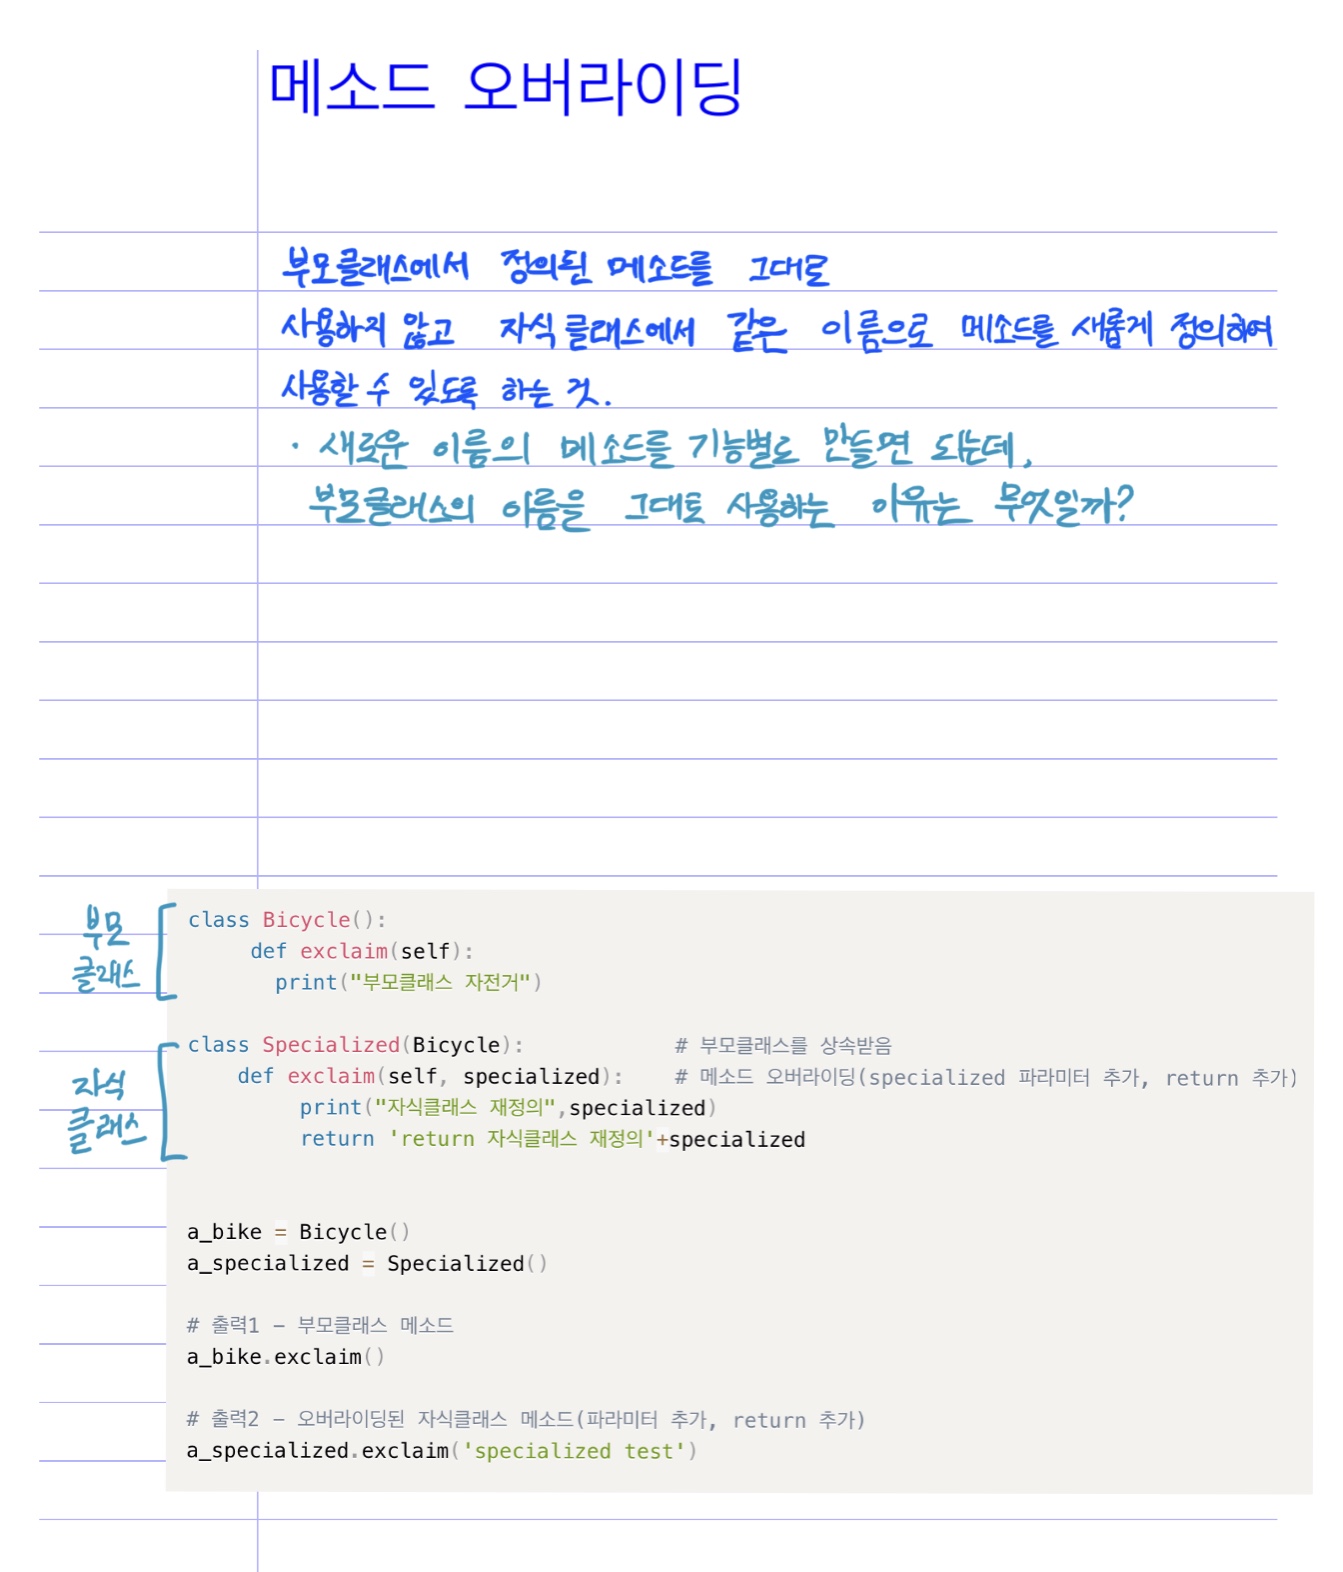 메소드 오버라이딩
부모클래스에서 정의된 메소드를 그대로
사용하지 않고 자식클래스에서 같은 이름으로 메소드를 새롭게 정의하여
사용할 수 있도록 하는 것.
· 새로운 이름의 메소드를 기능별로 만들면 되는데,
부모클래스의 이름을 그대로 사용하는 이유는 무엇일까?
부모
클래스
class Bicycle():
def exclaim(self):
print("부모클래스 자전거")
자식
클래스
class Specialized(Bicycle): # 부모클래스를 상속받음
def exclaim(self, specialized): # 메소드 오버라이딩(specialized 파라미터 추가, return 추가)
print("자식클래스 재정의",specialized)
return 'return 자식클래스 재정의'+specialized
a_bike = Bicycle()
a_specialized = Specialized()
# 출력1 – 부모클래스 메소드
a_bike.exclaim()
# 출력2 – 오버라이딩된 자식클래스 메소드(파라미터 추가, return 추가)
a_specialized.exclaim('specialized test')